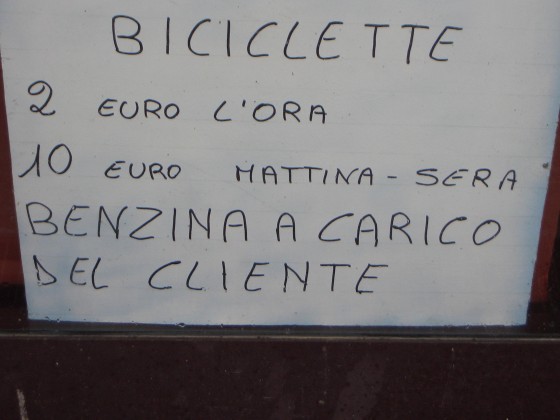 BICICLETTE
2 EURO L'ORA
10 EURO MATTINA - SERA
BENZINA A CARICO
DEL CLIENTE